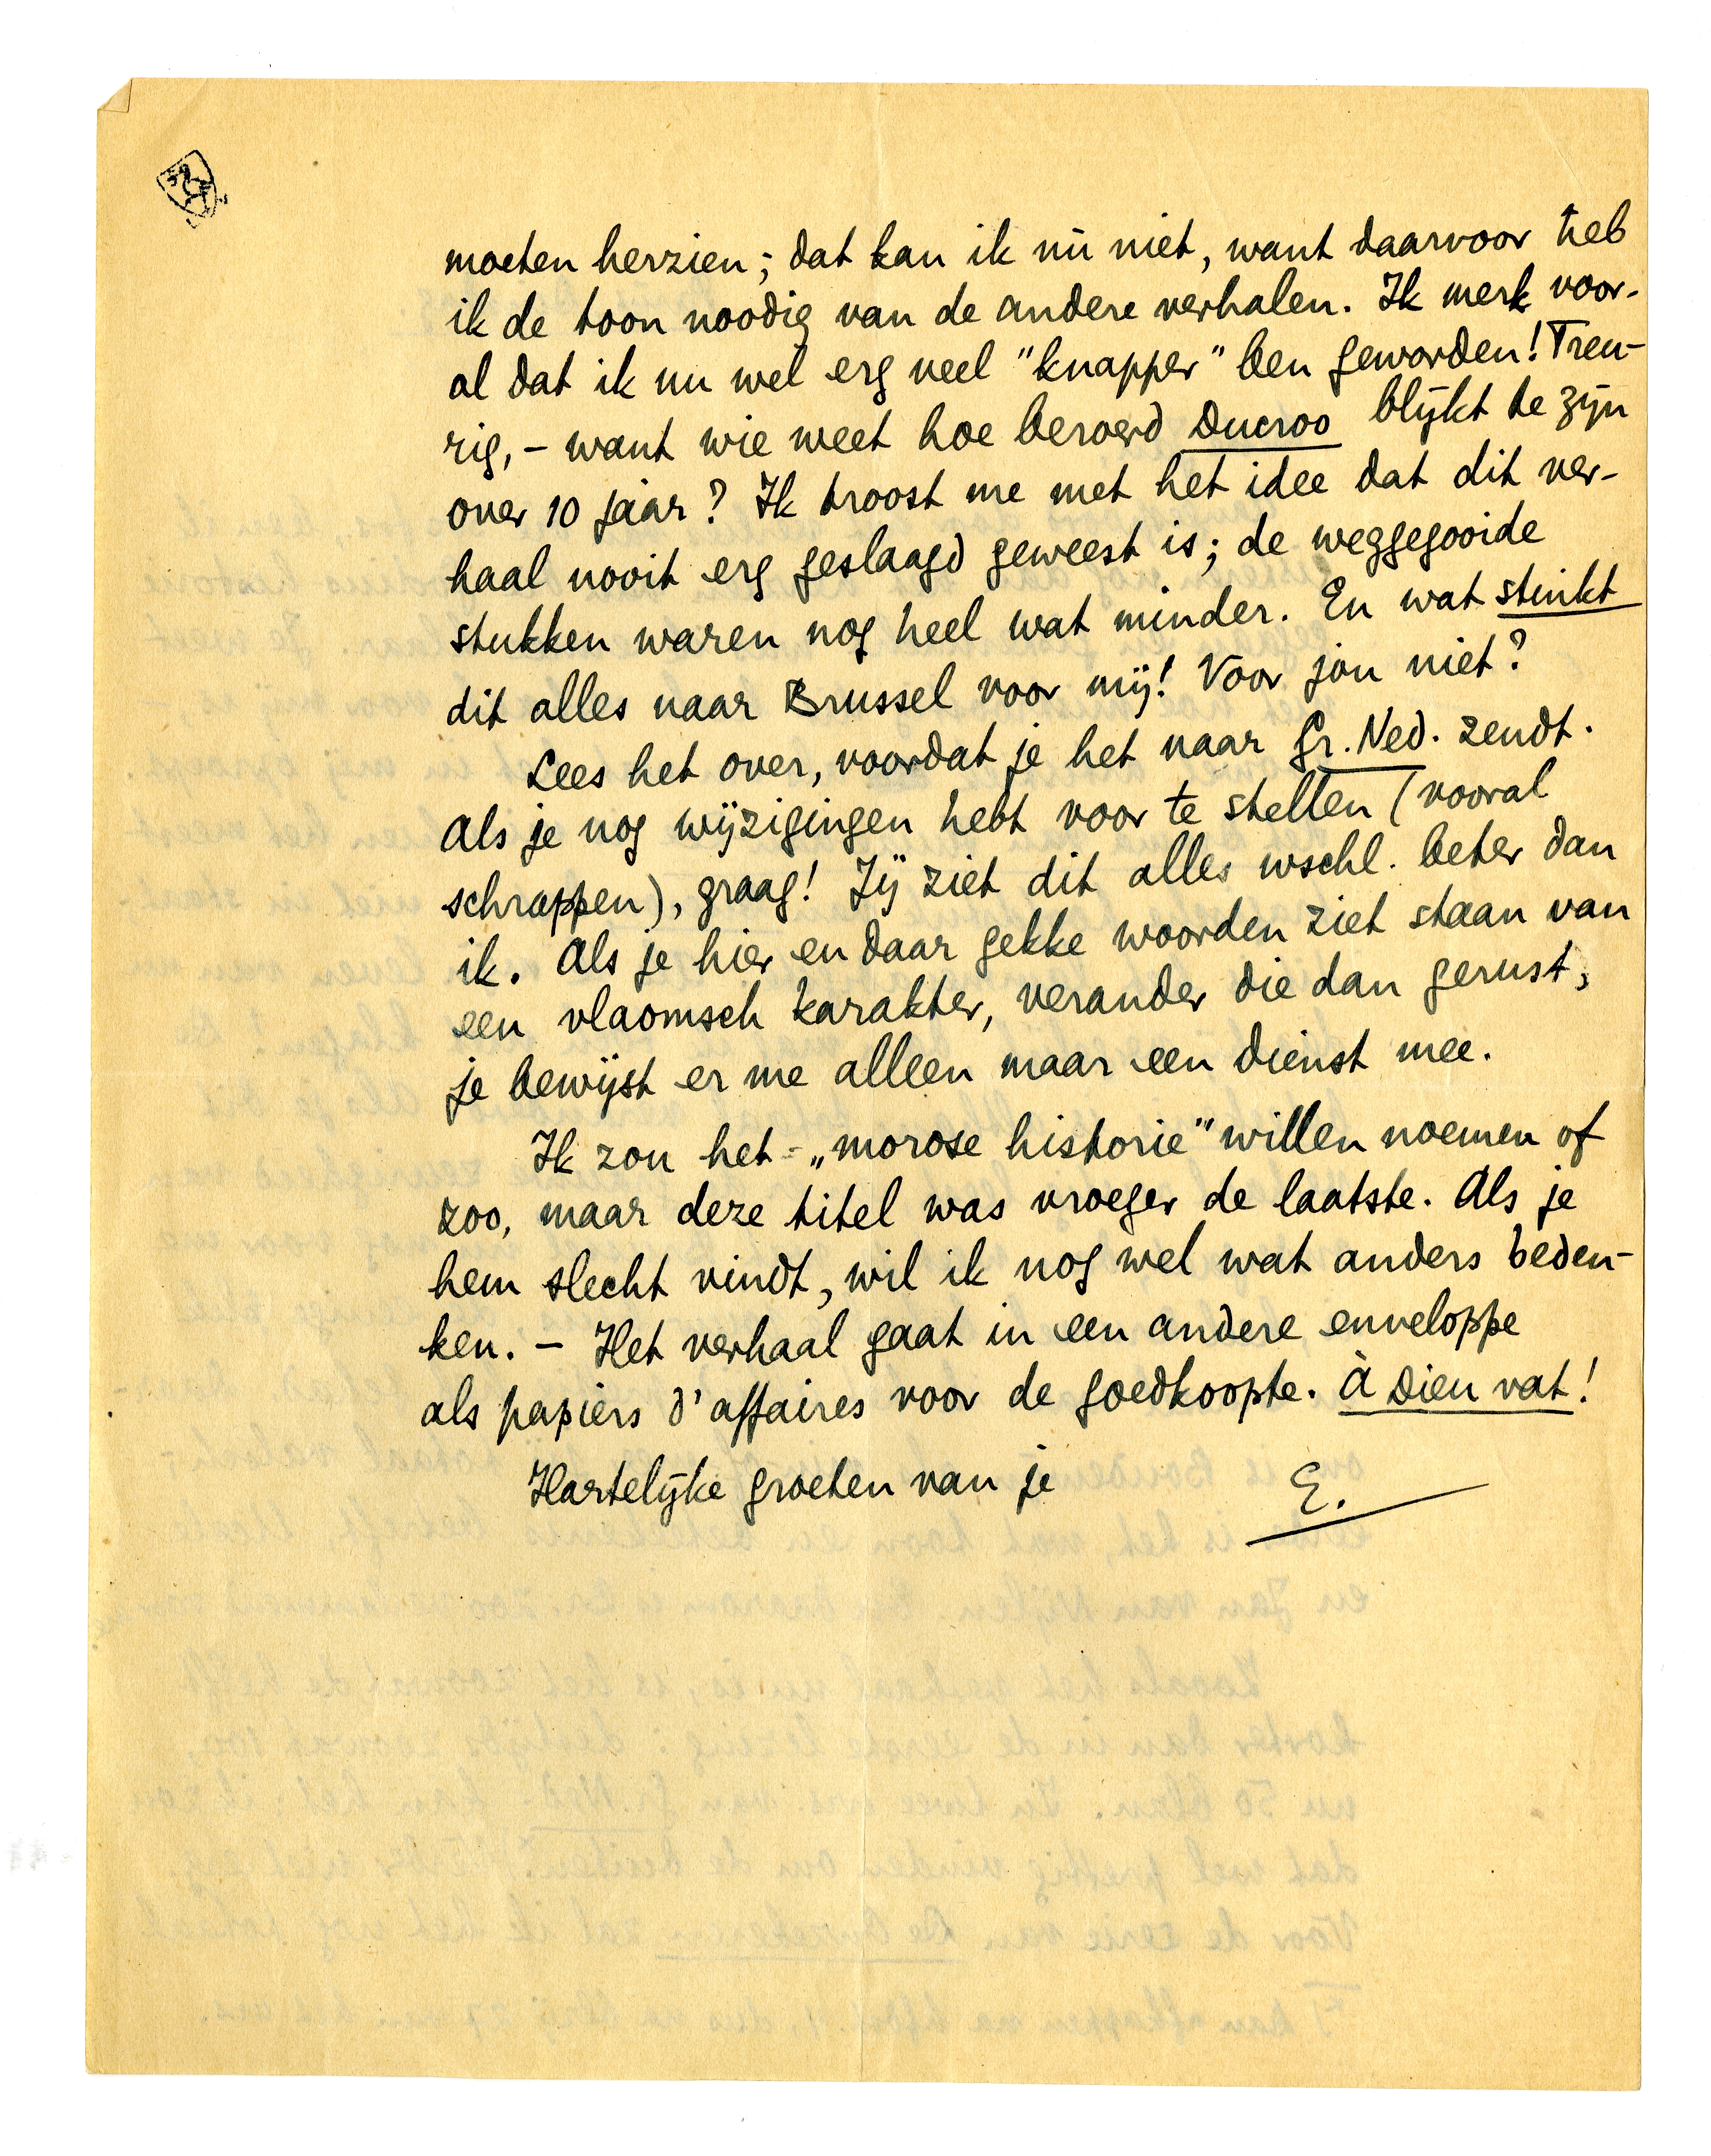 moeten herzien; dat kan ik nù niet, want daarvoor heb
ik de toon noodig van de andere verhalen. Ik merk voor-
al dat ik nu wel erg veel "knapper" ben geworden! Treu-
rig, - want wie weet hoe beroerd Ducroo blijkt te zijn
over 10 jaar? Ik troost me met het idee dat dit ver-
haal nooit erg geslaagd geweest is; de weggegooide
stukken waren nog heel wat minder. En wat stinkt
dit alles naar Brussel voor mij! Voor jou niet?
Lees het over, voordat je het naar Gr. Ned. zendt.
Als je nog wijzigingen hebt voor te stellen (vooral
schrappen), graag! Jij ziet dit alles wschl. beter dan
ik. Als je hier en daar gekke woorden ziet staan van
een vlaamsch karakter, verander die dan gerust,
je bewijst er me alleen maar een dienst mee.
Ik zou het „morose historie" willen noemen of
zoo, maar deze titel was vroeger de laatste. Als je
hem slecht vindt, wil ik nog wel wat anders beden-
ken. - Het verhaal gaat in een andere enveloppe
als papiers d'affaires voor de goedkoopte. À Dieu vat!
Hartelijke groeten van je E.